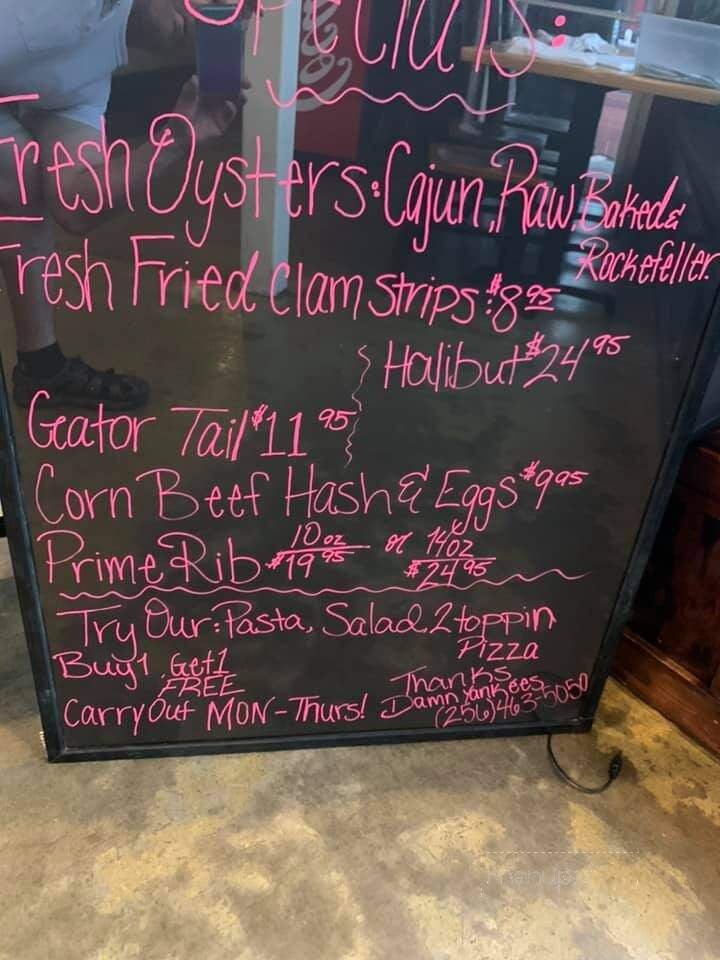 Specials:
Fresh Oysters: Cajun, Raw, Baked &
Rockefeller.
Fresh Fried Clam Strips: $8.95
Halibut $24.95
Geator Tail $11.95
Corn Beef Hash & Eggs $9.95
Prime Rib 10oz $19.95 or 14oz $24.95
Try Our: Pasta, Salad, 2 toppin
Pizza
Buy 1 Get 1
FREE
Carry Out MON-Thurs!
Thanks
Damn Yankees
(256) 463-5050